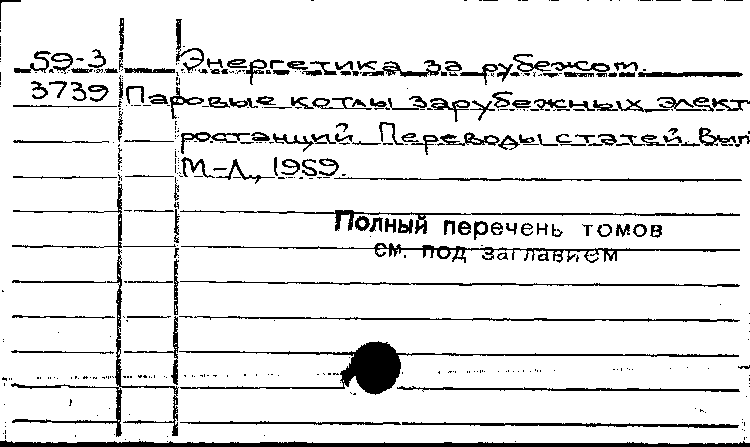 59-3 Энергетика за рубежом.
3739 Паровые котлы зарубежных элект
ростанций. Переводы статей. Вып
М-Л., 1959.
Полный перечень томов
см. под заглавием